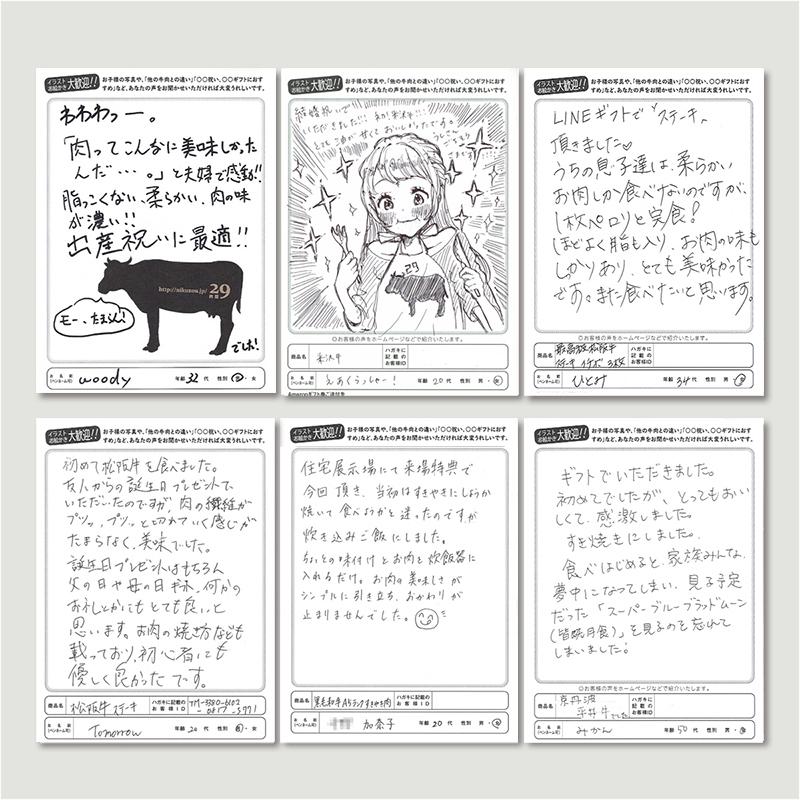 イラストお絵かき大歓迎!!
お子様の写真や、「他の牛肉との違い」「〇〇祝い、〇〇ギフトにおす
すめ」など、あなたの声をお聞かせいただければ大変うれしいです。
わわわっー。
「肉ってこんなに美味しかった
んだ…。」と夫婦で感動!!
脂っこくない、柔らかい、肉の味
が濃い!!
出産祝いに最適!!
http://nikuzou.jp/ 29
モー、たまらん!
でした!
お名前(ペンネーム可) woody 年齢 32代 性別 男・女
イラストお絵かき大歓迎!!
お子様の写真や、「他の牛肉との違い」「〇〇祝い、〇〇ギフトにおす
すめ」など、あなたの声をお聞かせいただければ大変うれしいです。
結婚祝いで
いただきました!!!
とても油が甘くておいしかったです。
29
◎お客様の声をホームページなどで紹介いたします。
商品名 米沢牛 ハガキに記載のお客様ID
お名前(ペンネーム可) えあくらっしゃー! 年齢 20代 性別 男・女
Amazonギフト券ご送付先
イラストお絵かき大歓迎!!
お子様の写真や、「他の牛肉との違い」「〇〇祝い、〇〇ギフトにおす
すめ」など、あなたの声をお聞かせいただければ大変うれしいです。
LINEギフトで"ステーキ"
頂きました♡
うちの息子達は、柔らかい
お肉しか食べないのですが、
1枚ペロリと完食!
ほどよく脂も入り、お肉の味も
しっかりあり、とても美味かった
です。また食べたいと思います。
◎お客様の声をホームページなどで紹介いたします。
商品名 最高級松阪牛 ハガキに記載のお客様ID
ステーキ イチボ 3枚
お名前(ペンネーム可) ひとみ 年齢 34代 性別 男・女
イラストお絵かき大歓迎!!
お子様の写真や、「他の牛肉との違い」「〇〇祝い、〇〇ギフトにおす
すめ」など、あなたの声をお聞かせいただければ大変うれしいです。
初めて松阪牛を食べました。
友人からの誕生日プレゼントで
いただいたのですが、肉の繊維が
プツッ、プツッと切れていく感じが
たまらなく、美味でした。
誕生日プレゼントはもちろん
父の日や母の日ギフト、何かの
お礼とかにもとても良いと
思います。お肉の焼き方なども
載っており、初心者にも
優しく良かったです。
商品名 松阪牛ステーキ ハガキに記載のお客様ID
お名前(ペンネーム可) Tomorrow 年齢 20代 性別 男・女
イラストお絵かき大歓迎!!
お子様の写真や、「他の牛肉との違い」「〇〇祝い、〇〇ギフトにおす
すめ」など、あなたの声をお聞かせいただければ大変うれしいです。
住宅展示場にて来場特典で
今回頂き、当初はすきやきにしようか
焼いて食べようかと迷ったのですが
炊き込みご飯にしました。
ちょっとの味付けとお肉を炊飯器に
入れるだけ。お肉の美味しさが
シンプルに引き立ち、おかわりが
止まりませんでした。
商品名 黒毛和牛A5ランクすきやき肉 ハガキに記載のお客様ID
お名前(ペンネーム可) 加奈子 年齢 20代 性別 男・女
イラストお絵かき大歓迎!!
お子様の写真や、「他の牛肉との違い」「〇〇祝い、〇〇ギフトにおす
すめ」など、あなたの声をお聞かせいただければ大変うれしいです。
ギフトでいただきました。
初めてでしたが、とってもおいし
しくて、感激しました。
すき焼きにしました。
食べはじめると、家族みんな、
夢中になってしまい、見る予定
だった「スーパーブルーブラッドムーン
(皆既月食)」を見るのを忘れて
しまいました!
◎お客様の声をホームページなどで紹介いたします。
商品名 京丹波 ハガキに記載のお客様ID
平井牛でした
お名前(ペンネーム可) みかん 年齢 50代 性別 男・女